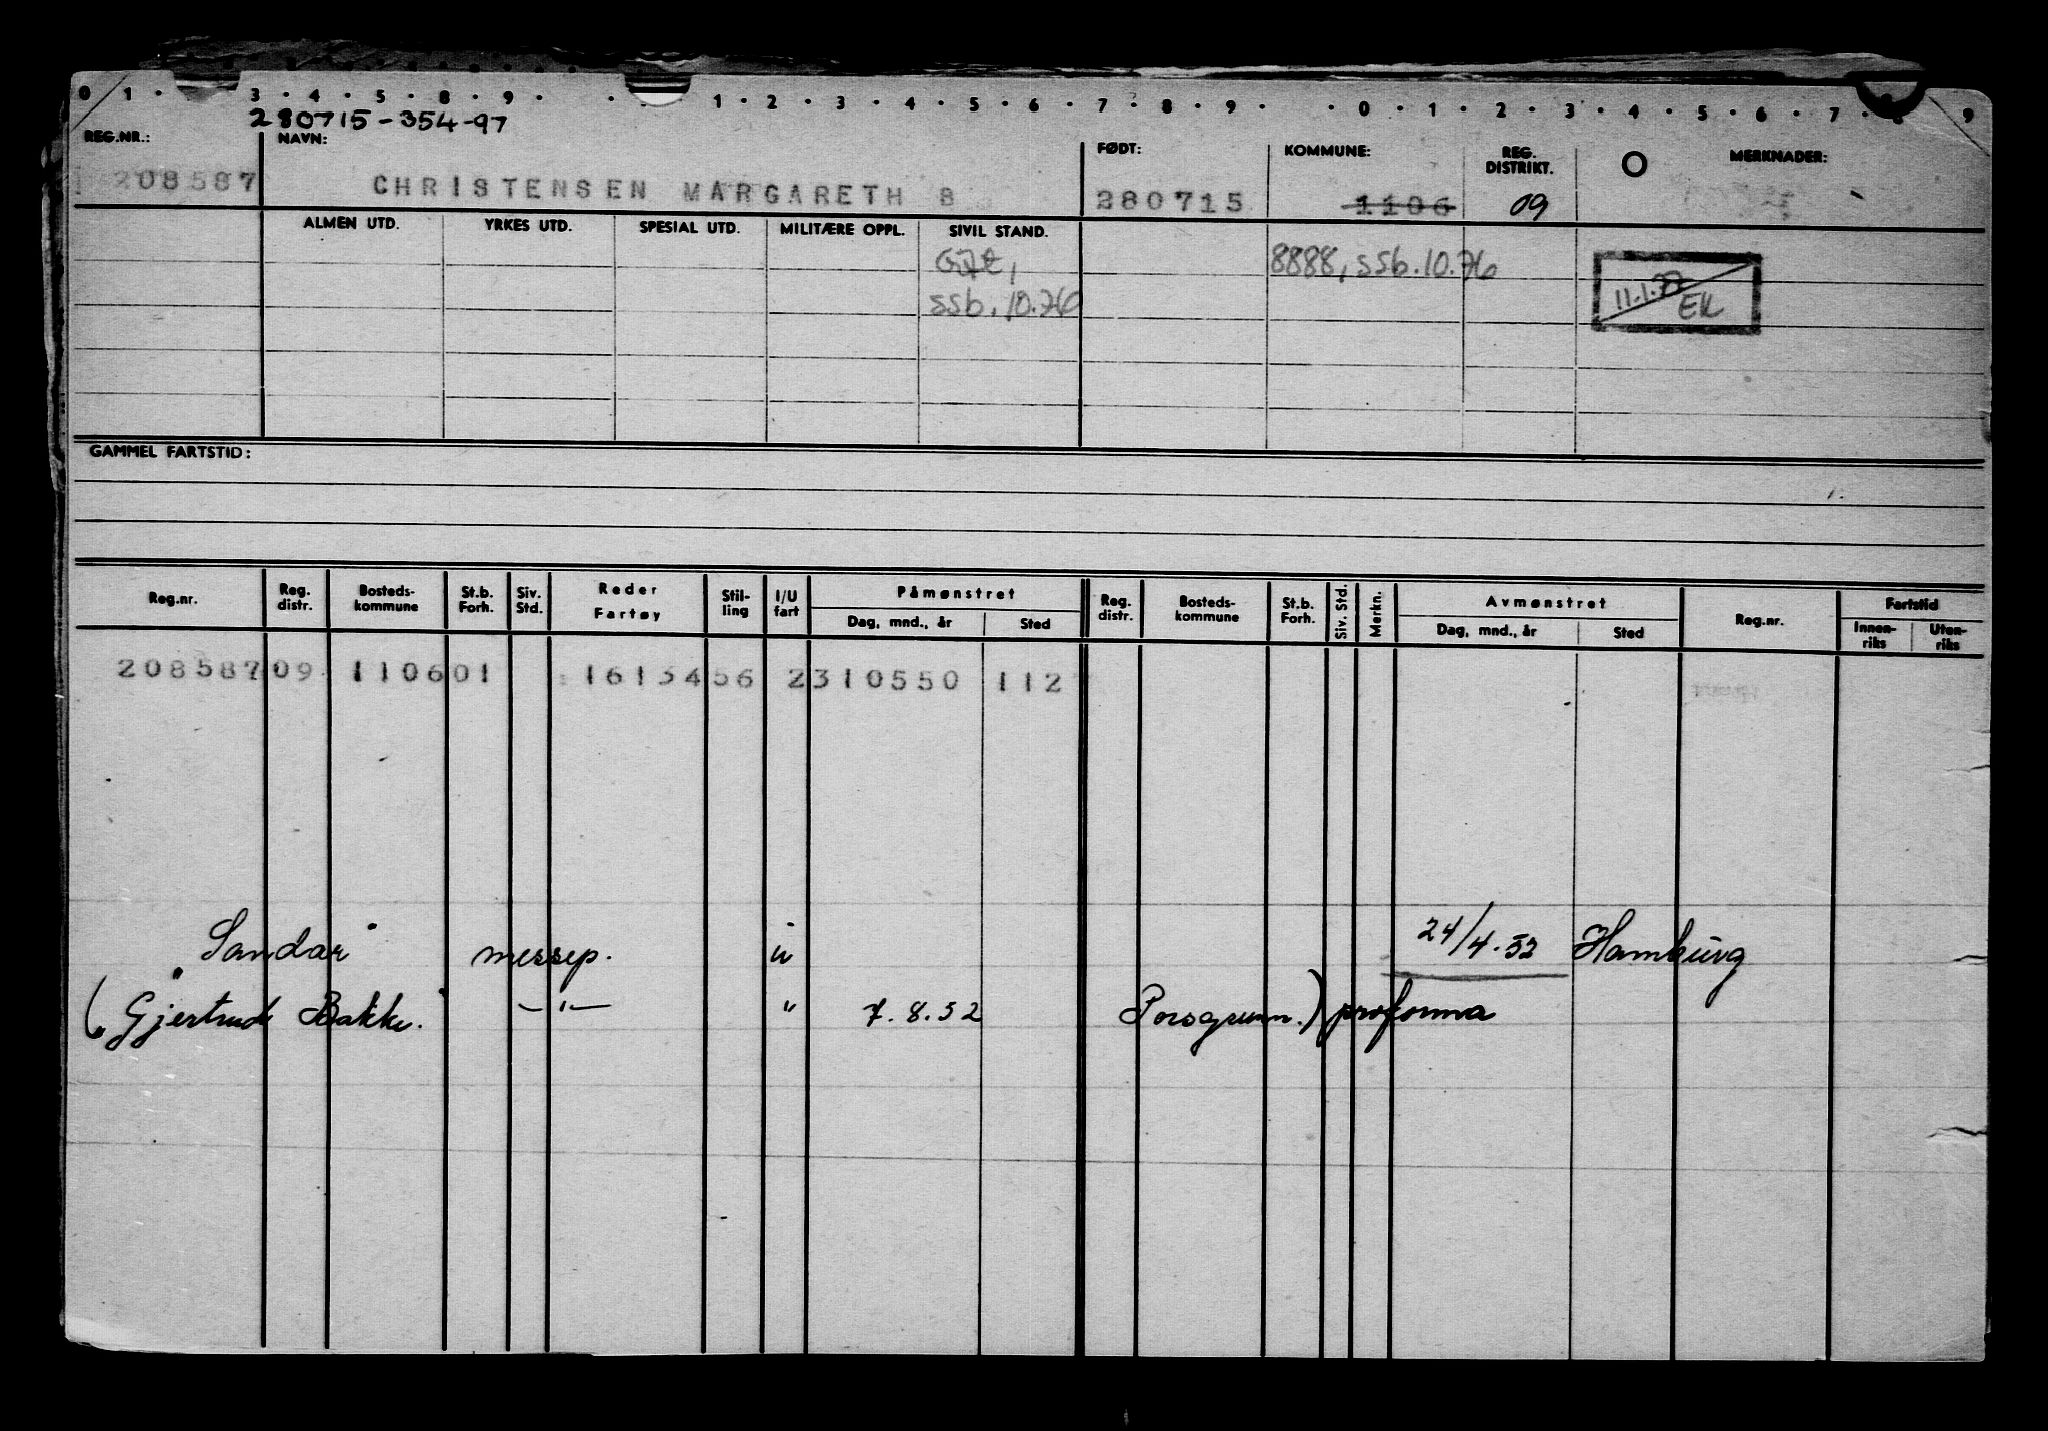 0 1 · 3 · 4 · 5 · 8 · 9 · · · 1 · 2 · 3 · 4 · 5 · 6 · 7 · 8 · 9 · · 0 · 1 · 2 · 3 · 4 · 5 · 6 · 7 · 9
280715-354-97
REG.NR.: NAVN: FØDT: KOMMUNE: REG. DISTRIKT. O MERKNADER:
208587 CHRISTENSEN MARGARETH B 280715 1106 09
ALMEN UTD. YRKES UTD. SPESIAL UTD. MILITÆRE OPPL. SIVIL STAND.
Gift, 8888, ssb.10.76
ssb.10.76
11.1.77
EK
GAMMEL FARTSTID:
Reg.nr. Reg. distr. Bosteds-kommune St.b. Forh. Siv. Std. Reder Fartøy Stil-ling I/U fart Påmønstret Reg. distr. Bosteds-kommune St.b. Forh. Siv. Std. Merkn. Avmønstret Reg.nr. Fartstid
Dag, mnd., år Sted Dag, mnd., år Sted Innen-riks Uten-riks
208587 09 1106 01 16134 56 2 310550 112
"Sandar" messep. u 24/4.52 Hamburg
("Gjertrud Bakke." —"— " 7.8.52 Porsgrunn.) proforma